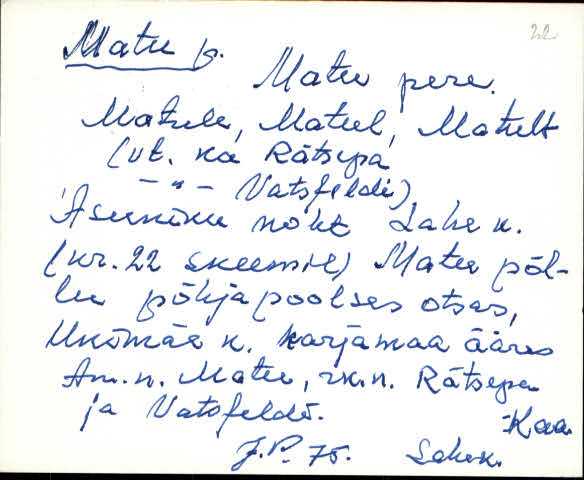 22
Matu p.
Matu pere.
Matule, Matul, Matult
(vt. ka Rätsepa
— " — Vatsfeldi)
Asuniku koht Lahe k.
(nr. 22 skeemil) Matu põl-
lu põhjapoolses otsas,
Ukömäe k. karjamaa ääres
Am. n. Matu, rk. n. Rätsepa
ja Vatsfeldi.
Kaa
J.P. 75. Lahe k.